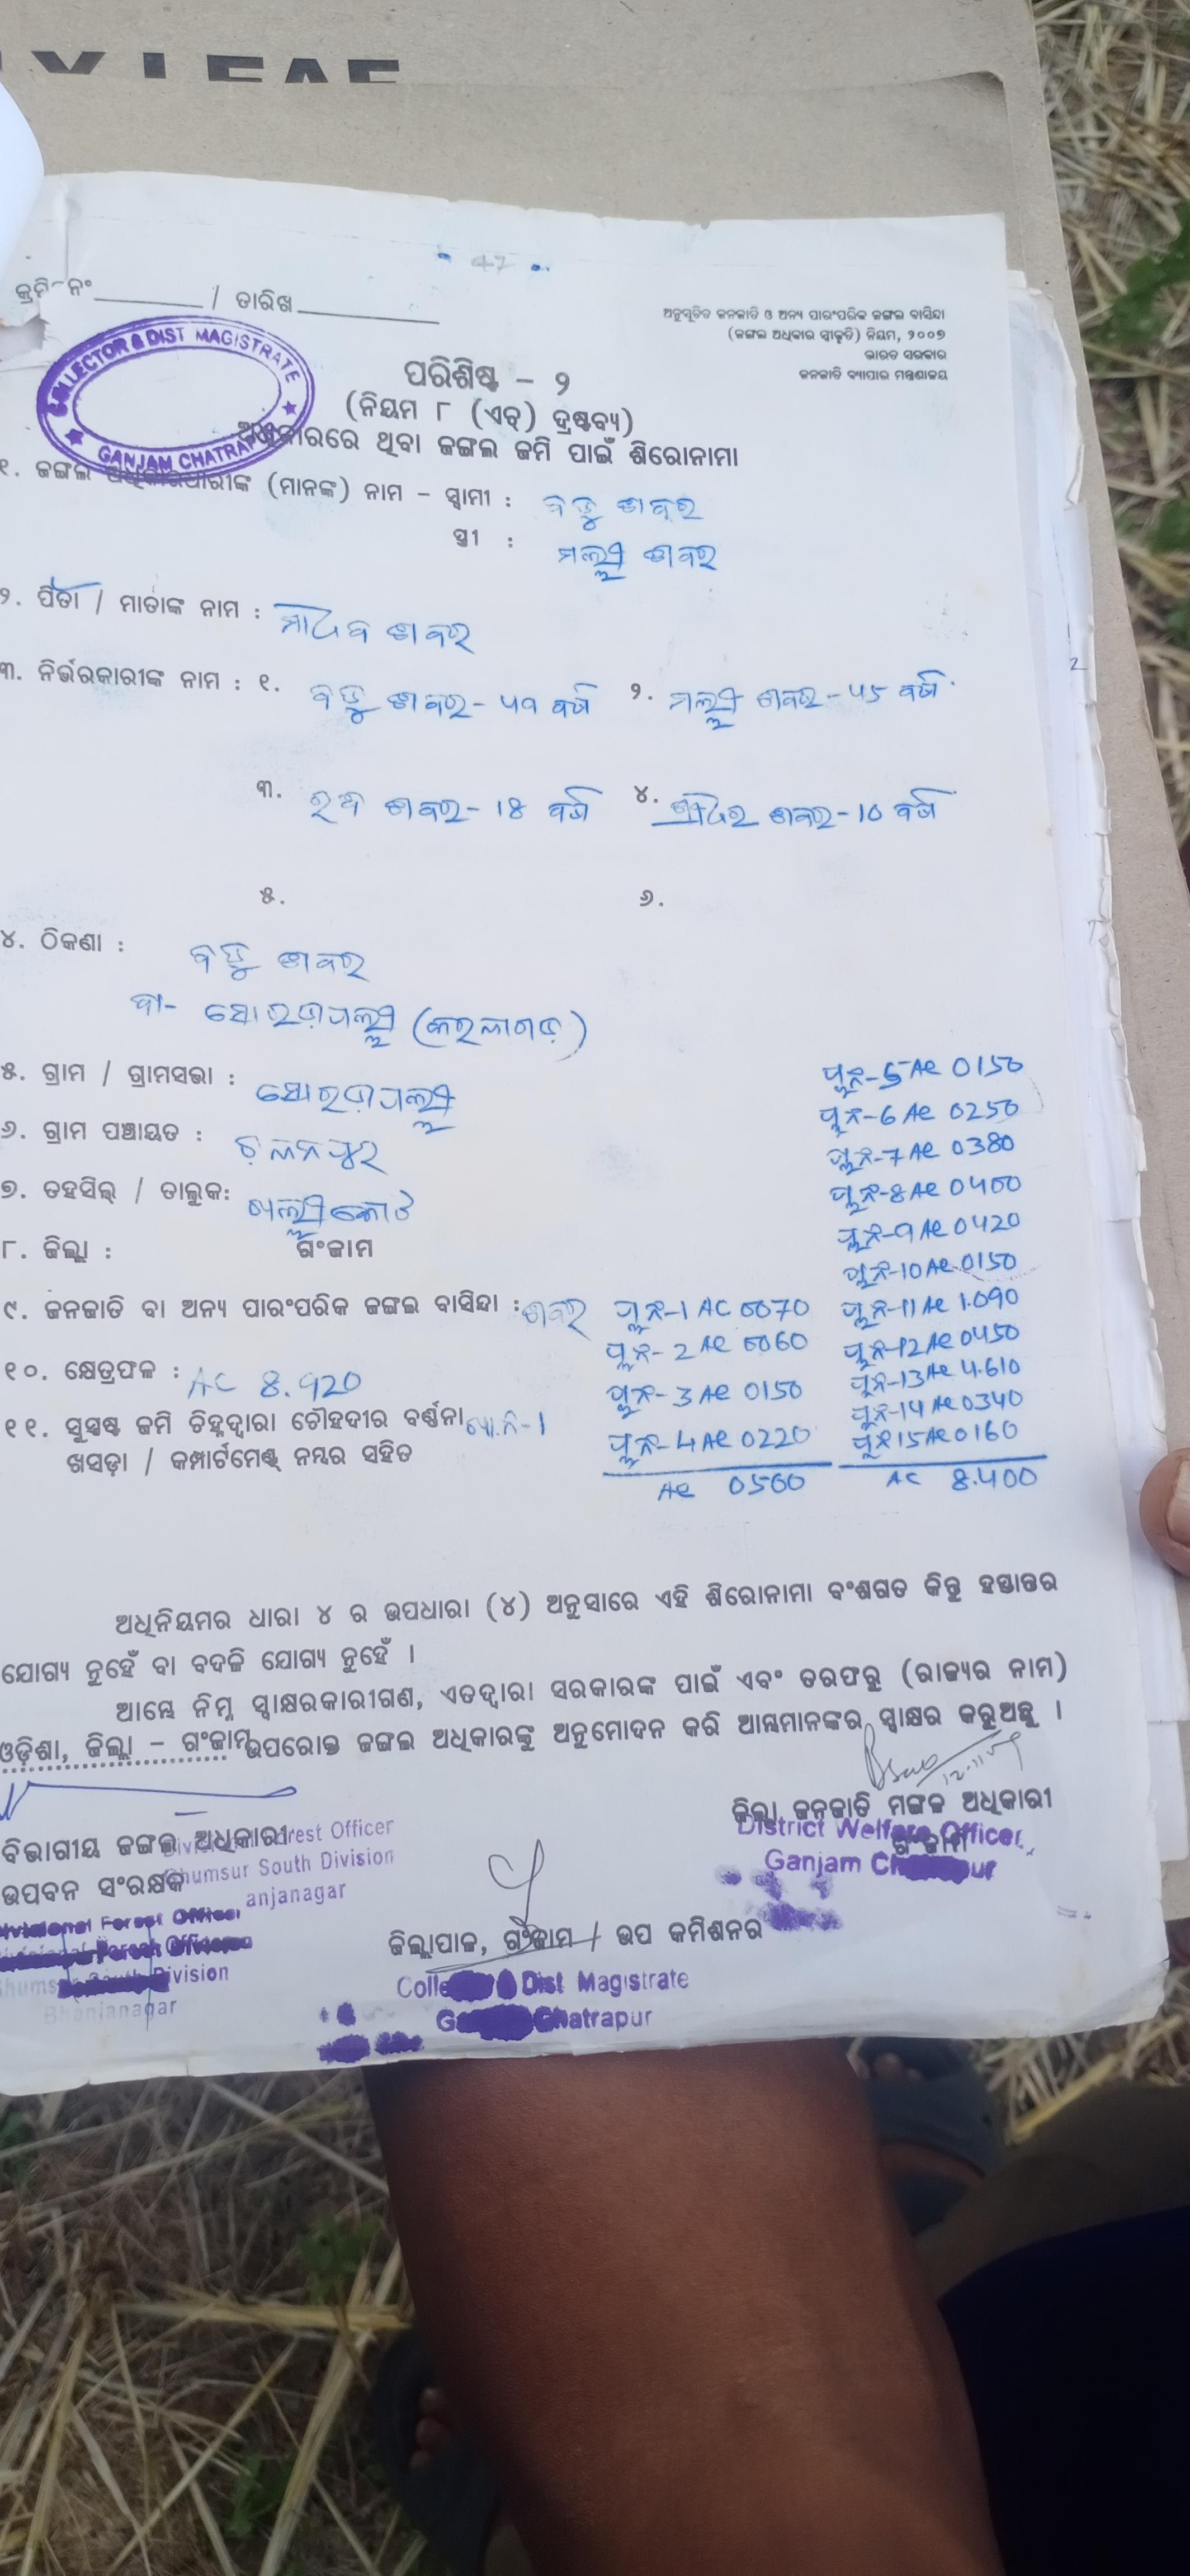 କ୍ରମିକ ନଂ / ତାରିଖ
ଅନୁସୂଚିତ ଜନଜାତି ଓ ଅନ୍ୟ ପାରଂପରିକ ଜଙ୍ଗଲ ବାସିନ୍ଦା
(ଜଙ୍ଗଲ ଅଧିକାର ସ୍ୱୀକୃତି) ନିୟମ, ୨୦୦୭
ଭାରତ ସରକାର
ଜନଜାତି ବ୍ୟାପାର ମନ୍ତ୍ରଣାଳୟ
COLLECTOR & DIST MAGISTRATE
GANJAM CHATRAPUR
ପରିଶିଷ୍ଟ - ୨
(ନିୟମ ୮ (ଏଚ୍) ଦ୍ରଷ୍ଟବ୍ୟ)
ଅଧିକାରରେ ଥିବା ଜଙ୍ଗଲ ଜମି ପାଇଁ ଶିରୋନାମା
୧. ଜଙ୍ଗଲ ଅଧିକାରଧାରୀଙ୍କ (ମାନଙ୍କ) ନାମ - ସ୍ୱାମୀ : ବଡୁ ଶବର
ସ୍ତ୍ରୀ : ମଲ୍ଲୀ ଶବର
୨. ପିତା / ମାତାଙ୍କ ନାମ : ମାଧବ ଶବର
୩. ନିର୍ଭରକାରୀଙ୍କ ନାମ : ୧. ବଡୁ ଶବର - ୪୨ ବର୍ଷ ୨. ମଲ୍ଲୀ ଶବର - ୪୫ ବର୍ଷ
୩. ଶବର - 18 ବର୍ଷ ୪. ଶବର - 10 ବର୍ଷ
୫. ୬.
୪. ଠିକଣା : ବଡୁ ଶବର
ସୋରଡ଼ାପଲ୍ଲୀ
୫. ଗ୍ରାମ / ଗ୍ରାମସଭା : ସୋରଡ଼ାପଲ୍ଲୀ
୬. ଗ୍ରାମ ପଞ୍ଚାୟତ :
୭. ତହସିଲ୍ / ତାଲୁକ: ଖଲ୍ଲୀକୋଟ
୮. ଜିଲ୍ଲା : ଗଂଜାମ
୯. ଜନଜାତି ବା ଅନ୍ୟ ପାରଂପରିକ ଜଙ୍ଗଲ ବାସିନ୍ଦା : ଶବର
୧୦. କ୍ଷେତ୍ରଫଳ : AC 8.920
୧୧. ସୁସ୍ପଷ୍ଟ ଜମି ଚିହ୍ନଦ୍ୱାରା ଚୌହଦୀର ବର୍ଣ୍ଣନା
ଖସଡ଼ା / କମ୍ପାର୍ଟମେଣ୍ଟ୍ ନମ୍ବର ସହିତ
ପ୍ଲଟ-1 AC 0070
ପ୍ଲଟ-2 AC 0060
ପ୍ଲଟ-3 AC 0150
ପ୍ଲଟ-4 AC 0220
AC 0500
ପ୍ଲଟ-5 AC 0150
ପ୍ଲଟ-6 AC 0250
ପ୍ଲଟ-7 AC 0380
ପ୍ଲଟ-8 AC 0400
ପ୍ଲଟ-9 AC 0420
ପ୍ଲଟ-10 AC 0150
ପ୍ଲଟ-11 AC 1.090
ପ୍ଲଟ-12 AC 0450
ପ୍ଲଟ-13 AC 4.610
ପ୍ଲଟ-14 AC 0340
ପ୍ଲଟ 15 AC 0160
AC 8.400
ଅଧିନିୟମର ଧାରା ୪ ର ଉପଧାରା (୪) ଅନୁସାରେ ଏହି ଶିରୋନାମା ବଂଶଗତ କିନ୍ତୁ ହସ୍ତାନ୍ତର
ଯୋଗ୍ୟ ନୁହେଁ ବା ବଦଳି ଯୋଗ୍ୟ ନୁହେଁ ।
ଆମ୍ଭେ ନିମ୍ନ ସ୍ୱାକ୍ଷରକାରୀଗଣ, ଏତଦ୍ୱାରା ସରକାରଙ୍କ ପାଇଁ ଏବଂ ତରଫରୁ (ରାଜ୍ୟର ନାମ)
ଓଡ଼ିଶା, ଜିଲ୍ଲା - ଗଂଜାମ ଉପରୋକ୍ତ ଜଙ୍ଗଲ ଅଧିକାରଙ୍କୁ ଅନୁମୋଦନ କରି ଆମ୍ଭମାନଙ୍କର ସ୍ୱାକ୍ଷର କରୁଅଛୁ ।
ବିଭାଗୀୟ ଜଙ୍ଗଲ ଅଧିକାରୀ
ଉପବନ ସଂରକ୍ଷକ
Divisional Forest Officer
Ghumsur South Division
Bhanjanagar
ଜିଲ୍ଲା ଜନଜାତି ମଙ୍ଗଳ ଅଧିକାରୀ
ଗଂଜାମ
District Welfare Officer
Ganjam
ଜିଲ୍ଲାପାଳ, ଗଂଜାମ / ଉପ କମିଶନର
Dist Magistrate
Chatrapur